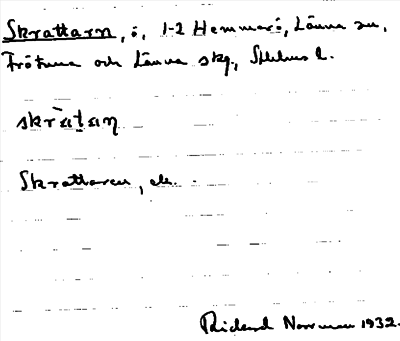 Skrattarn, ö, 1-2 Hemmarö, Länna sn,
Frötuna och Länna skg., Sthlms l.
skràtaṇ
Skrattaren, ek.
Rickard Norrman 1932.